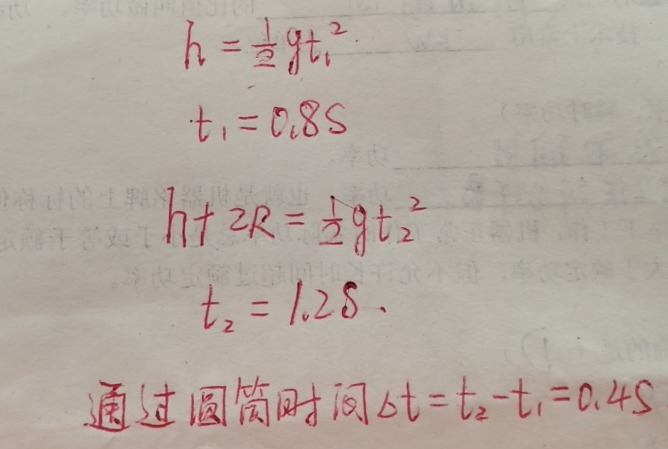 h = ½gt₁²
t₁ = 0.8S
h + 2R = ½gt₂²
t₂ = 1.2S.
通过圆筒时间Δt = t₂ - t₁ = 0.4S